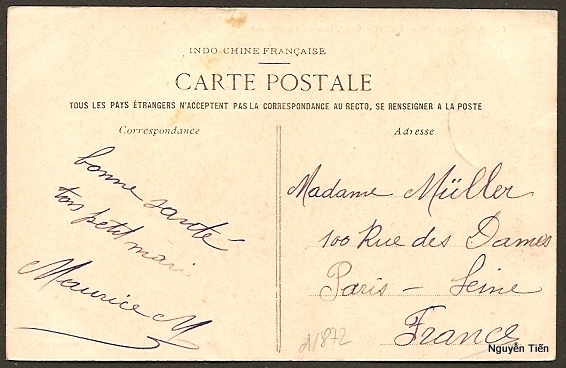 INDO-CHINE FRANÇAISE
CARTE POSTALE
TOUS LES PAYS ÉTRANGERS N'ACCEPTENT PAS LA CORRESPONDANCE AU RECTO, SE RENSEIGNER A LA POSTE
Correspondance
bonne santé
ton petit mari
Maurice M
Adresse
Madame Müller
100 Rue des Dames
Paris – Seine
France
d/872
Nguyễn Tiến